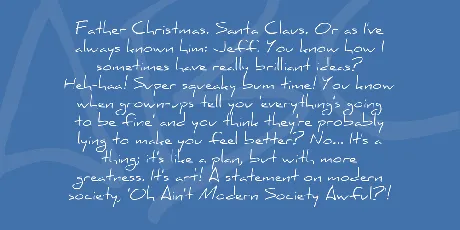 Father Christmas. Santa Claus. Or as I've
always known him: 'Jeff'. You know how I
sometimes have really brilliant ideas?
Heh-haa! Super squeaky bum time! You know
when grown-ups tell you 'everything's going
to be fine' and you think they're probably
lying to make you feel better? No... It's a
thing; it's like a plan, but with more
greatness. It's art! A statement on modern
society, 'Oh Ain't Modern Society Awful?'!